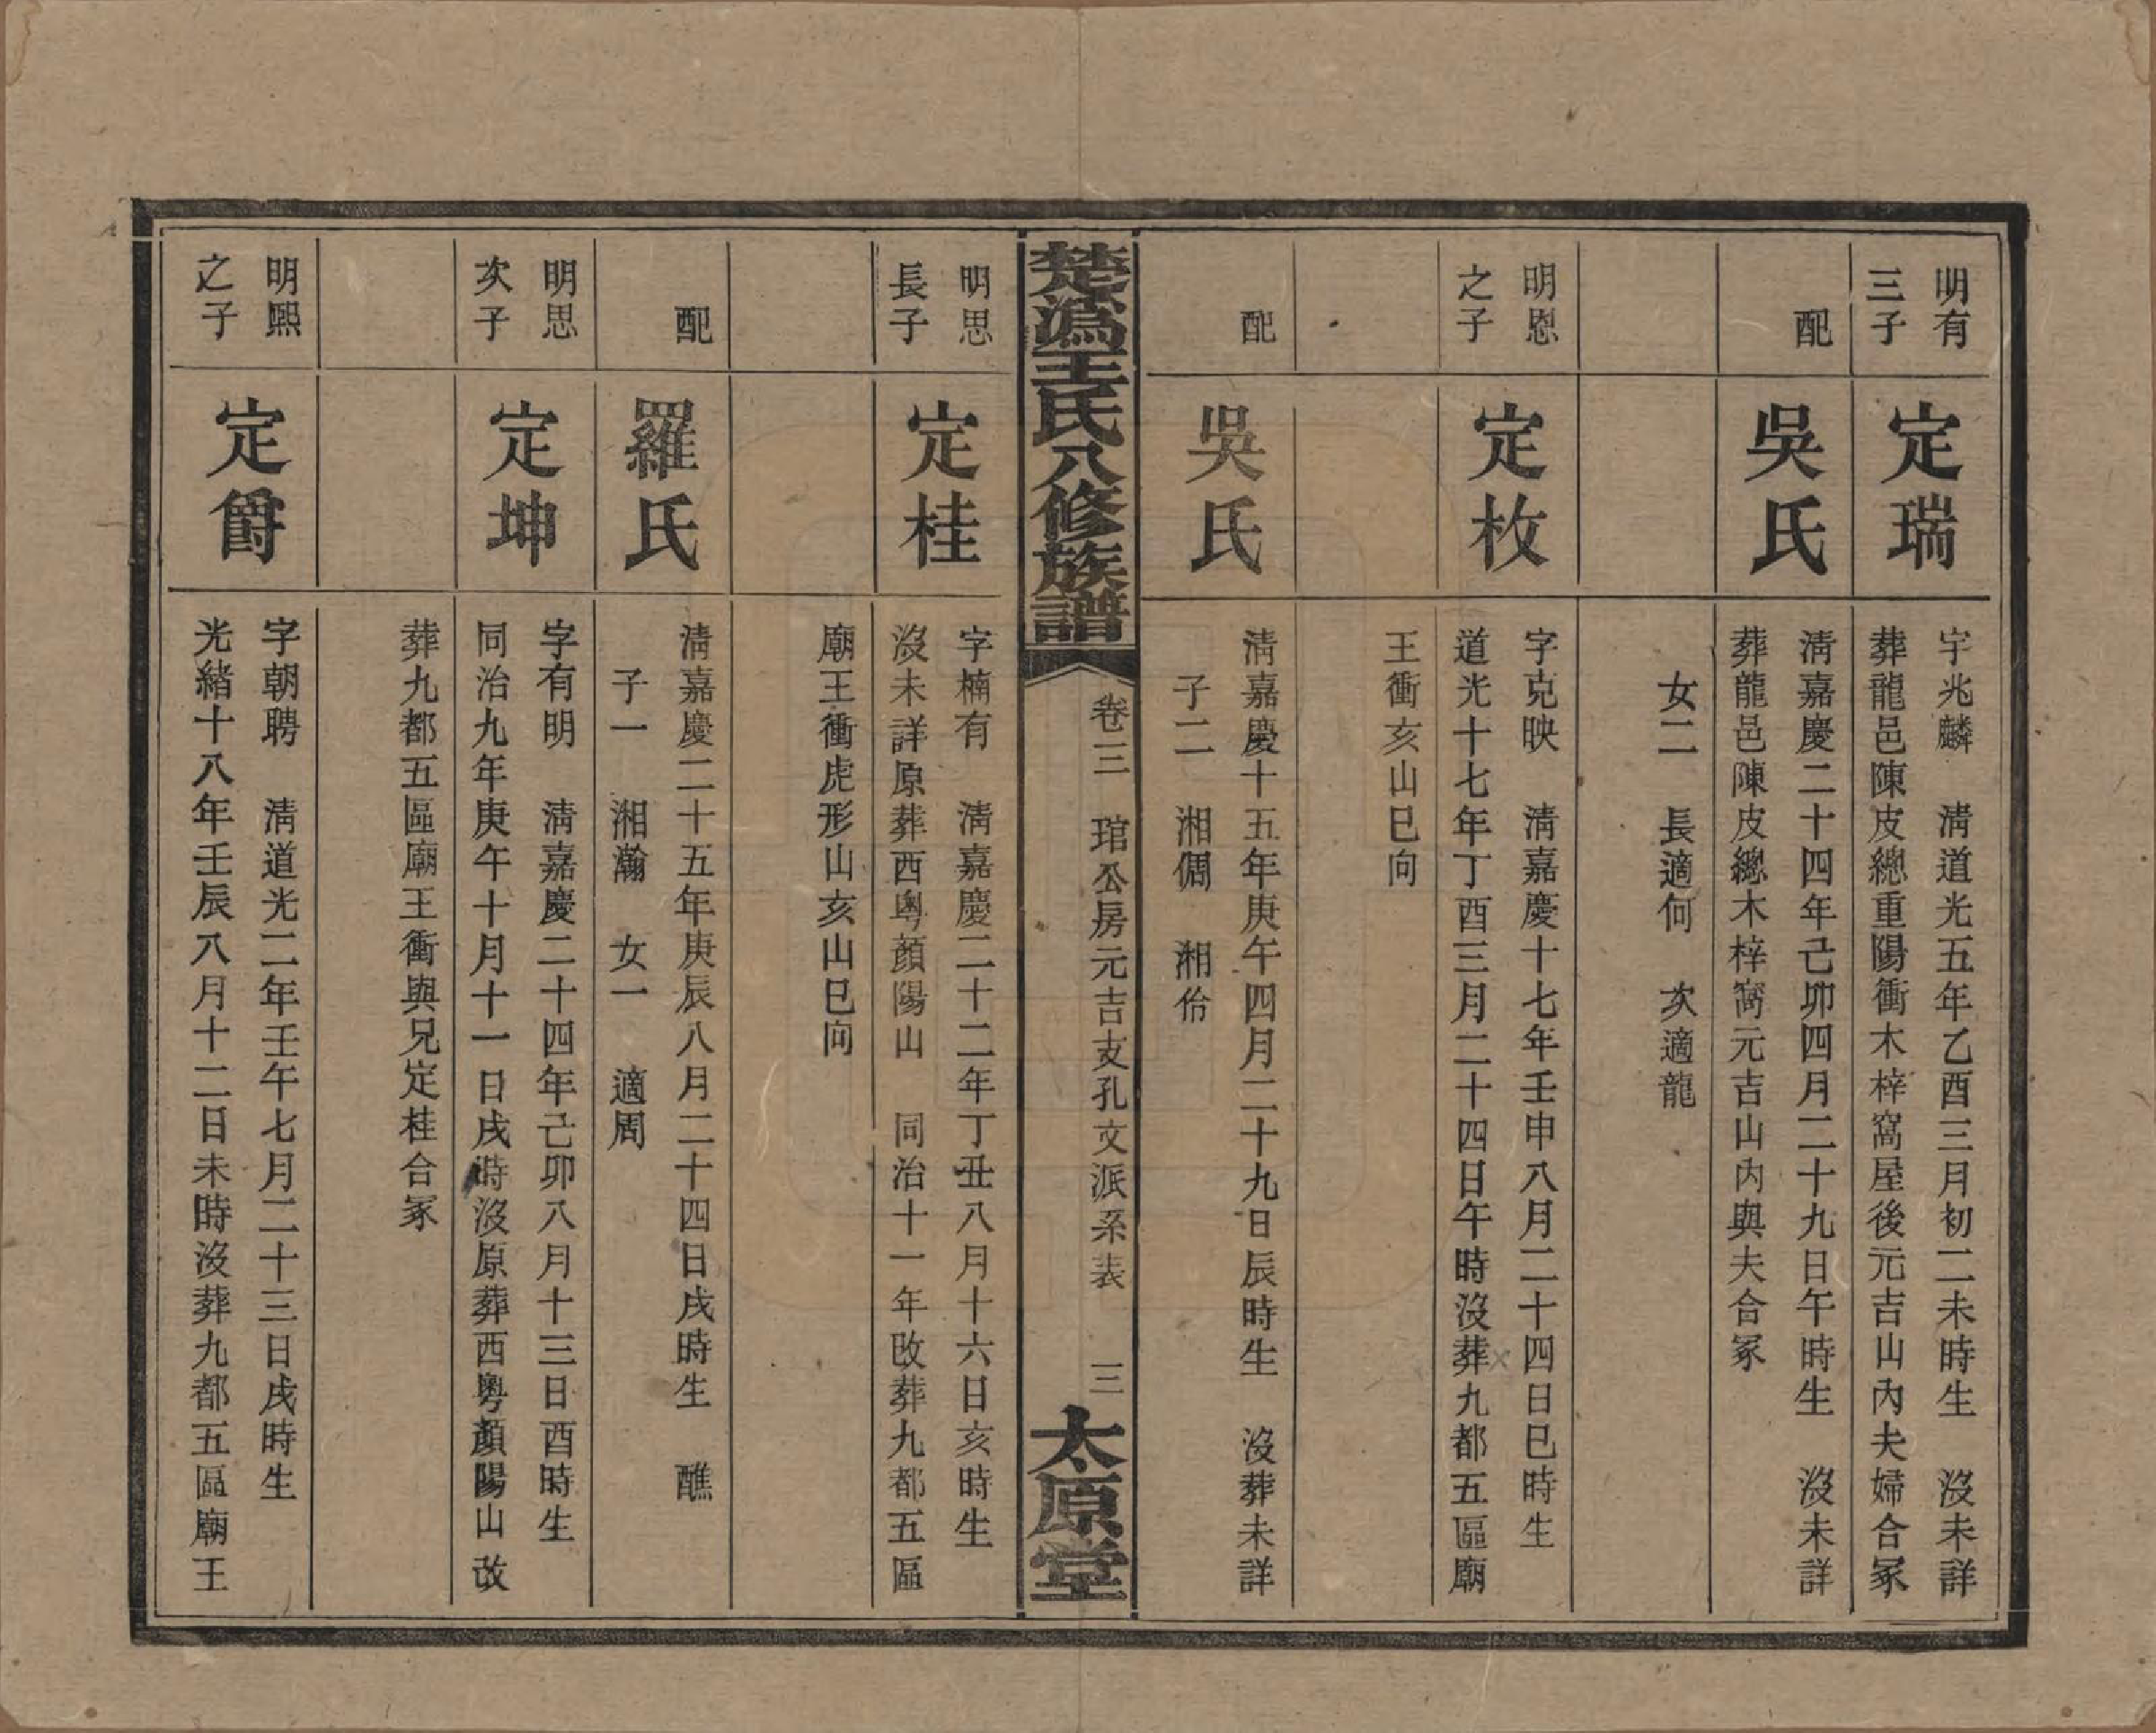 明有
三子
定瑞
字兆麟　淸道光五年乙酉三月初二未時生　沒未詳
葬龍邑陳皮總重陽衝木梓窩屋後元吉山內夫婦合冢
配
吳氏
淸嘉慶二十四年己卯四月二十九日午時生　沒未詳
葬龍邑陳皮總木梓窩元吉山內與夫合冢
女二　長適何　次適龍
明恩
之子
定枚
字克映　淸嘉慶十七年壬申八月二十四日巳時生
道光十七年丁酉三月二十四日午時沒葬九都五區廟
王衝亥山巳向
配
吳氏
淸嘉慶十五年庚午四月二十九日辰時生　沒葬未詳
子二　湘倜　湘佮
楚潙王氏八修族譜
卷三　琯公房元吉支孔文派系表　三
太原堂
明思
長子
定桂
字楠有　淸嘉慶二十二年丁丑八月十六日亥時生
沒未詳原葬西粵顏陽山　同治十一年改葬九都五區
廟王衝虎形山亥山巳向
配
羅氏
淸嘉慶二十五年庚辰八月二十四日戌時生　醮
子一　湘瀚　女一　適周
明思
次子
定坤
字有明　淸嘉慶二十四年己卯八月十三日酉時生
同治九年庚午十月十一日戌時沒原葬西粵顏陽山改
葬九都五區廟王衝與兄定桂合冢
明熙
之子
定爵
字朝聘　淸道光二年壬午七月二十三日戌時生
光緒十八年壬辰八月十二日未時沒葬九都五區廟王